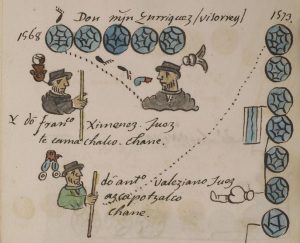 Don mj̃n Enrriquez (visorrey)
1568
1573.
Y dõ fran.co Ximenez. Juez
tecamachalco. chane.
dõ ant.o Valeziano Juez
azcapotzalco
chane.